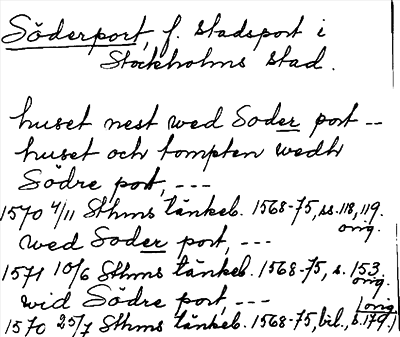 Söderport, f. stadsport i
Stockholms stad.
huset nest wed Soder port --
huset och tompten wedh
Södre port, ---
1570 4/11 Sthms tänkeb. 1568-75, ss. 118, 119.
orig.
wed Soder port, ---
1571 10/6 Sthms tänkeb. 1568-75, s. 153
orig.
wid Södre port, ---
1570 25/7 Sthms tänkeb. 1568-75, bil., s. 179.)
(orig.